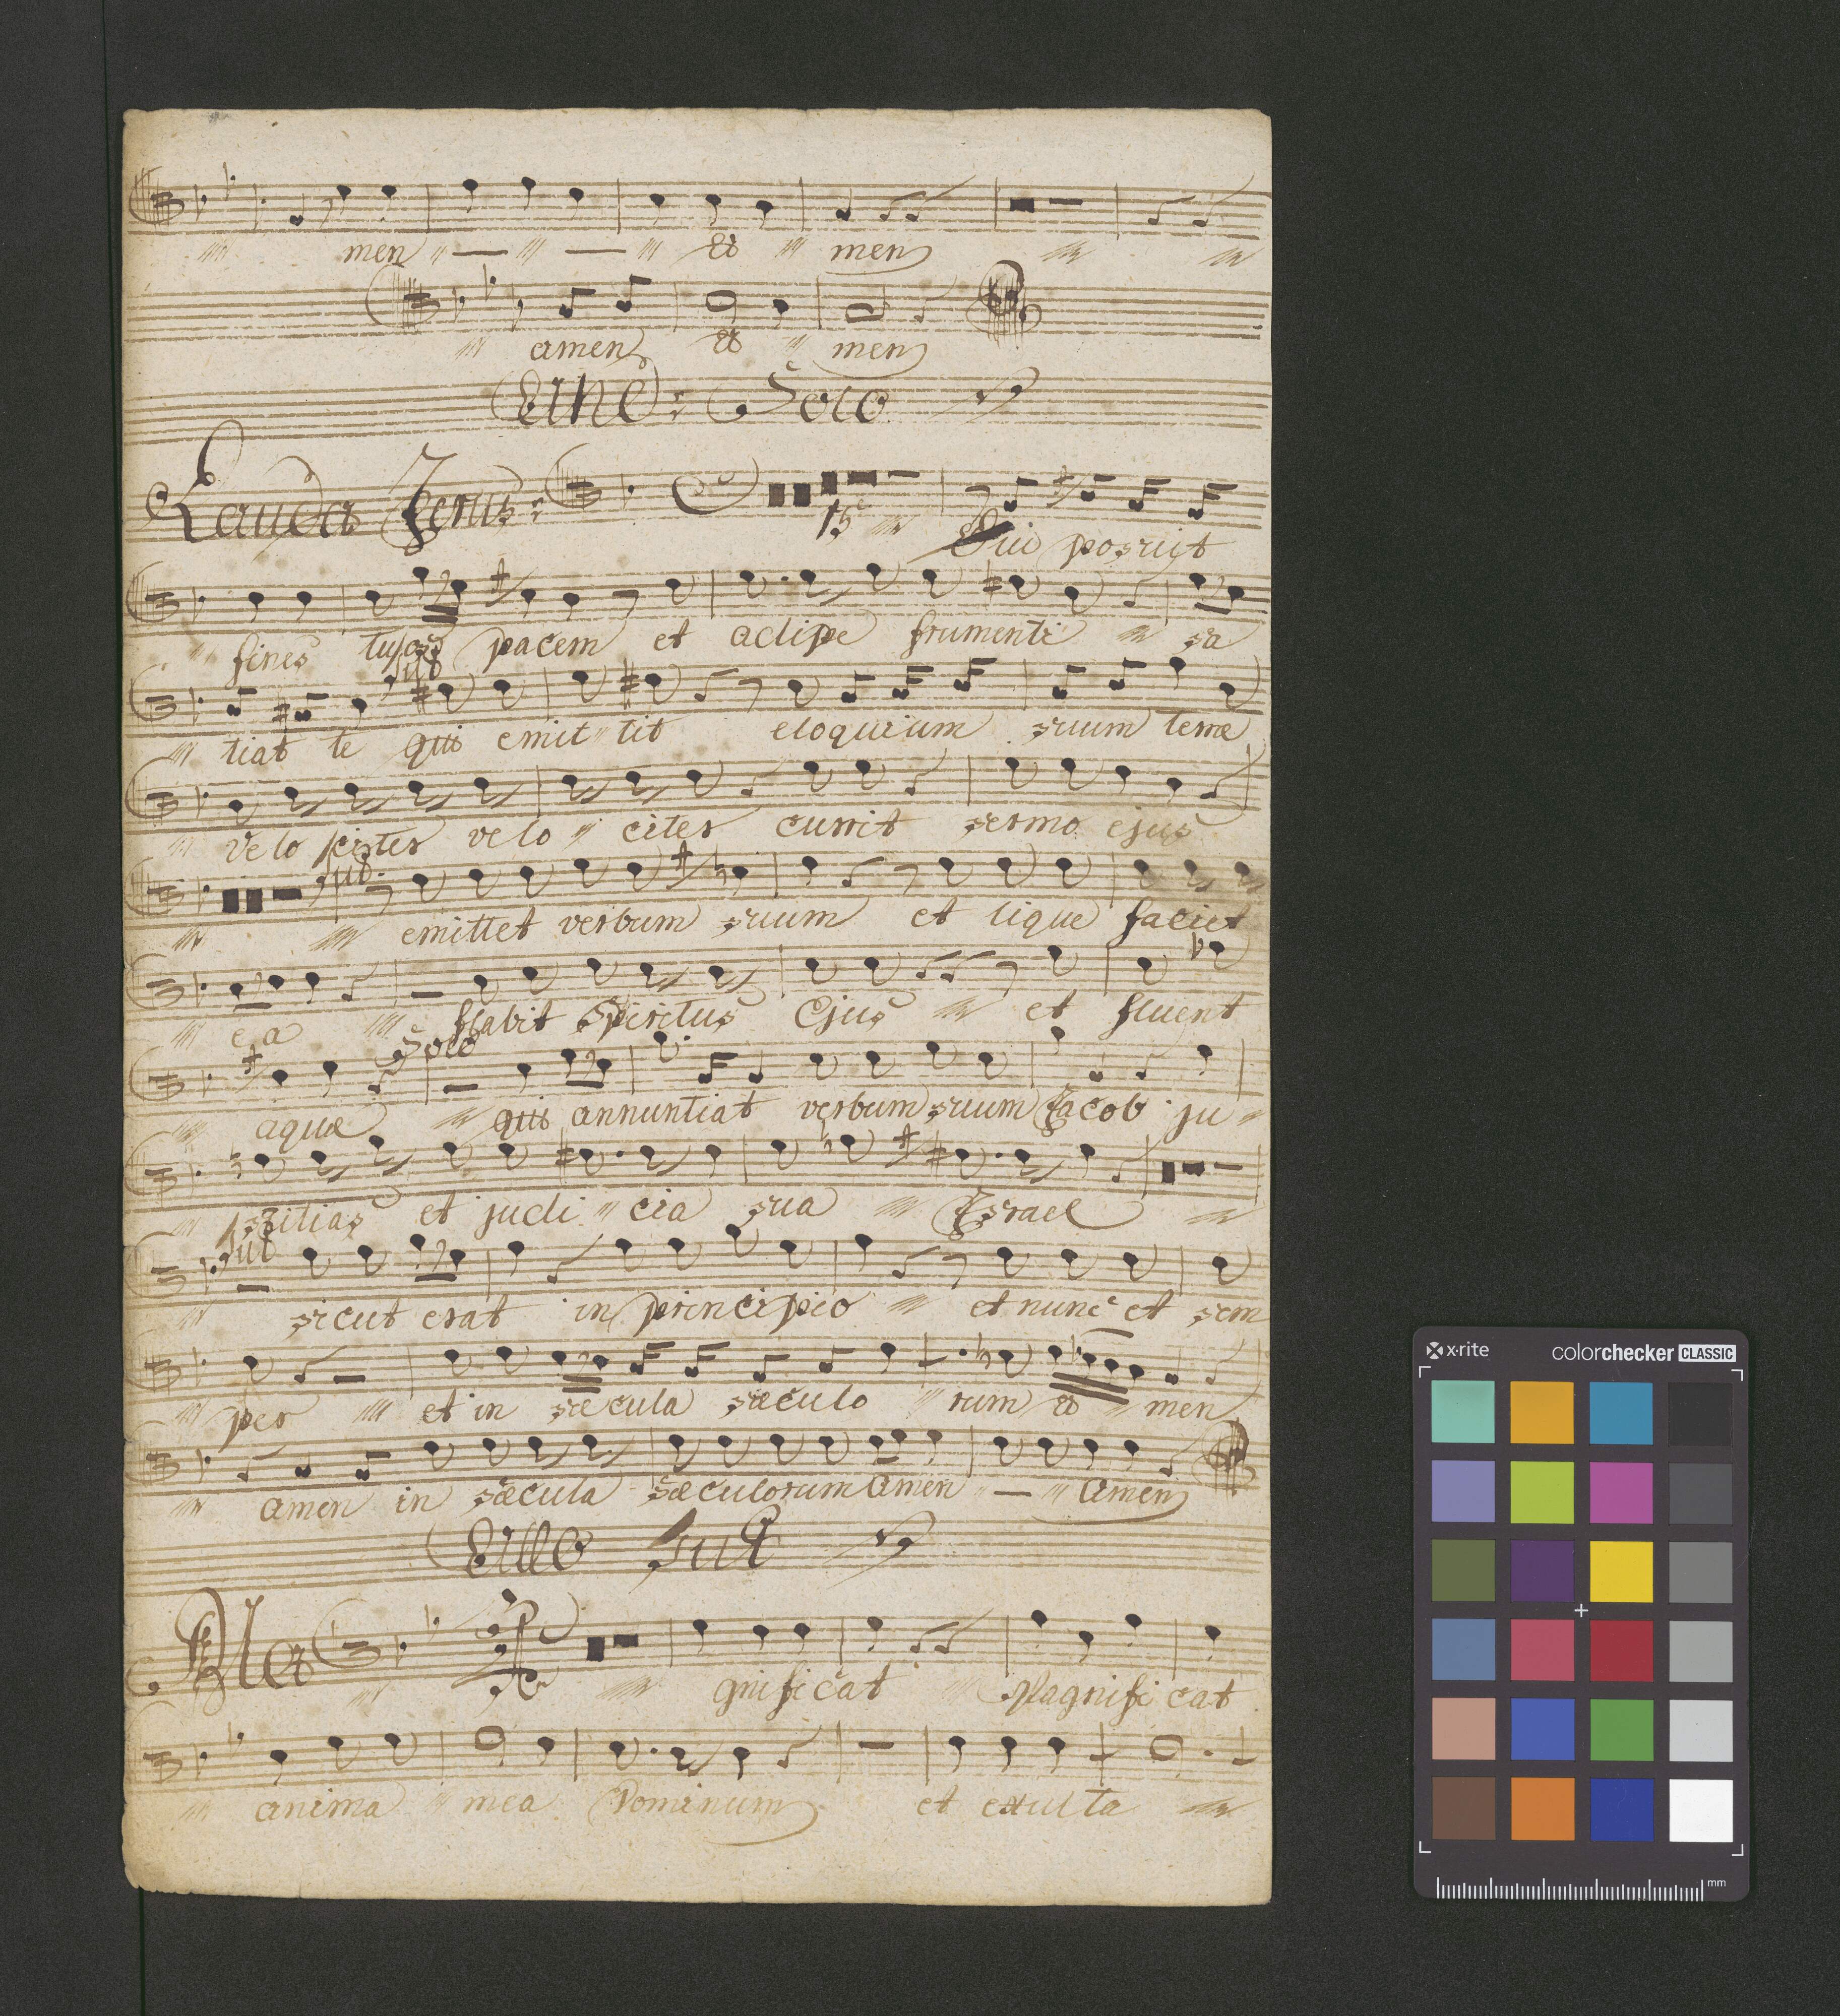 men et men
amen et men
Solo
Lauda Jerus: 15
Qui posuit
fines tuos pacem et adipe frumenti sa
tut
tiat te qui emittit eloquium suum terræ
velociter velociter currit sermo ejus
tut.
emittet verbum suum et lique faciet
ea flabit Spiritus Ejus et fluent
Solo
aquæ qui annuntiat verbum suum Jacob ju
stitias et judicia sua Israel
tut
sicut erat in principio et nunc et sem
per et in sæcula sæculo rum a men
amen in sæcula sæculorum Amen Amen
Ma
gnificat Magnificat
anima mea Dominum et exulta
x-rite colorchecker CLASSIC
mm